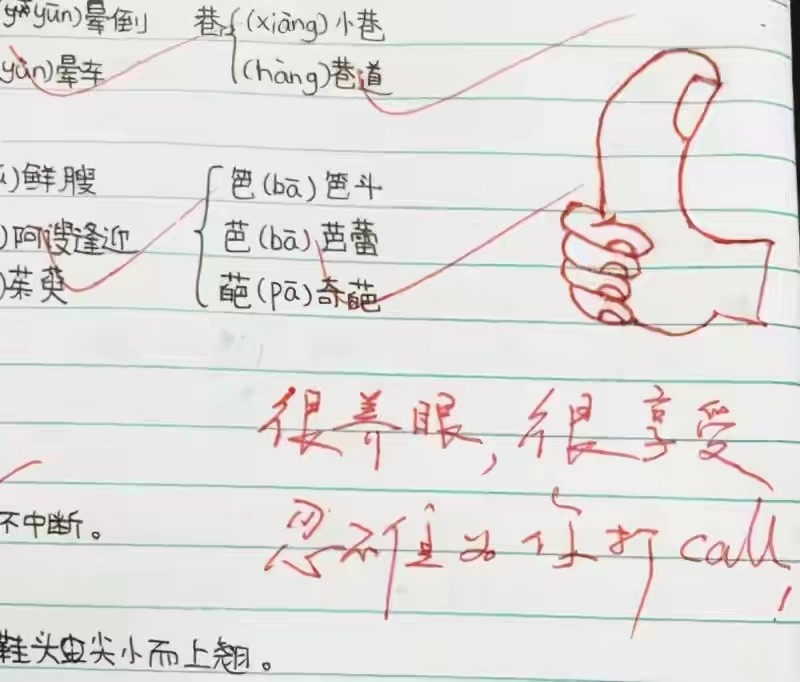 yūn)晕倒 巷{(xiàng)小巷
yùn)晕车 (hàng)巷道
)鲜艘 笆(bā)笆斗
)阿谀逢迎 芭(bā)芭蕾
)茱萸 葩(pā)奇葩
很养眼,很享受
不中断。
忍不住为你打call!
鞋头尖小而上翘。